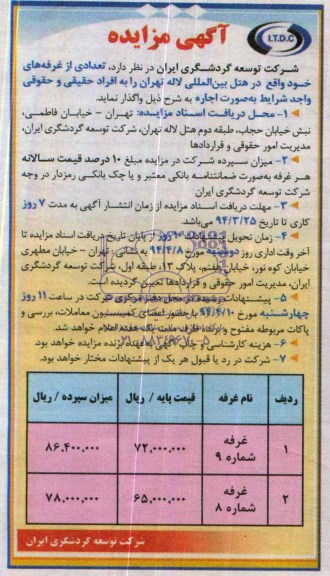 I.T.D.C
آگهی مزایده
شرکت توسعه گردشگری ایران در نظر دارد، تعدادی از غرفه‌های
خود واقع در هتل بین‌المللی لاله تهران را به افراد حقیقی و حقوقی
واجد شرایط به‌صورت اجاره به شرح ذیل واگذار نماید.
۱- محل دریافت اسناد مزایده: تهران - خیابان فاطمی،
نبش خیابان حجاب، طبقه دوم هتل لاله تهران، شرکت توسعه گردشگری ایران،
مدیریت امور حقوقی و قراردادها
۲- میزان سپرده شرکت در مزایده مبلغ ۱۰ درصد قیمت سالانه
هر غرفه به‌صورت ضمانتنامه بانکی معتبر و یا چک بانکی رمزدار در وجه
شرکت توسعه گردشگری ایران
۳- مهلت دریافت اسناد مزایده از زمان انتشار آگهی به مدت ۷ روز
کاری تا تاریخ ۹۴/۳/۲۵ می‌باشد.
۴- زمان تحویل پیشنهادات ۱۰ روز از پایان تاریخ دریافت اسناد مزایده تا
آخر وقت اداری روز دوشنبه مورخ ۹۴/۴/۸ به نشانی: تهران - خیابان مطهری
خیابان کوه نور، خیابان هفتم، پلاک ۱۳، طبقه اول، شرکت توسعه گردشگری
ایران، مدیریت امور حقوقی و قراردادها تعیین گردیده است.
۵- پیشنهادات رسیده در محل دفتر مرکزی شرکت در ساعت ۱۱ روز
چهارشنبه مورخ ۹۴/۴/۱۰ با حضور اعضای کمیسیون معاملات، بررسی و
پاکات مربوطه مفتوح و برنده ظرف مدت یک هفته اعلام خواهد شد.
۶- هزینه کارشناسی و چاپ آگهی به‌عهده برنده مزایده خواهد بود.
۷- شرکت در رد یا قبول هر یک از پیشنهادات مختار خواهد بود.
ردیف نام غرفه قیمت پایه / ریال میزان سپرده / ریال
۱ غرفه شماره ۹ ۷۲,۰۰۰,۰۰۰ ۸۶,۴۰۰,۰۰۰
۲ غرفه شماره ۸ ۶۵,۰۰۰,۰۰۰ ۷۸,۰۰۰,۰۰۰
شرکت توسعه گردشگری ایران